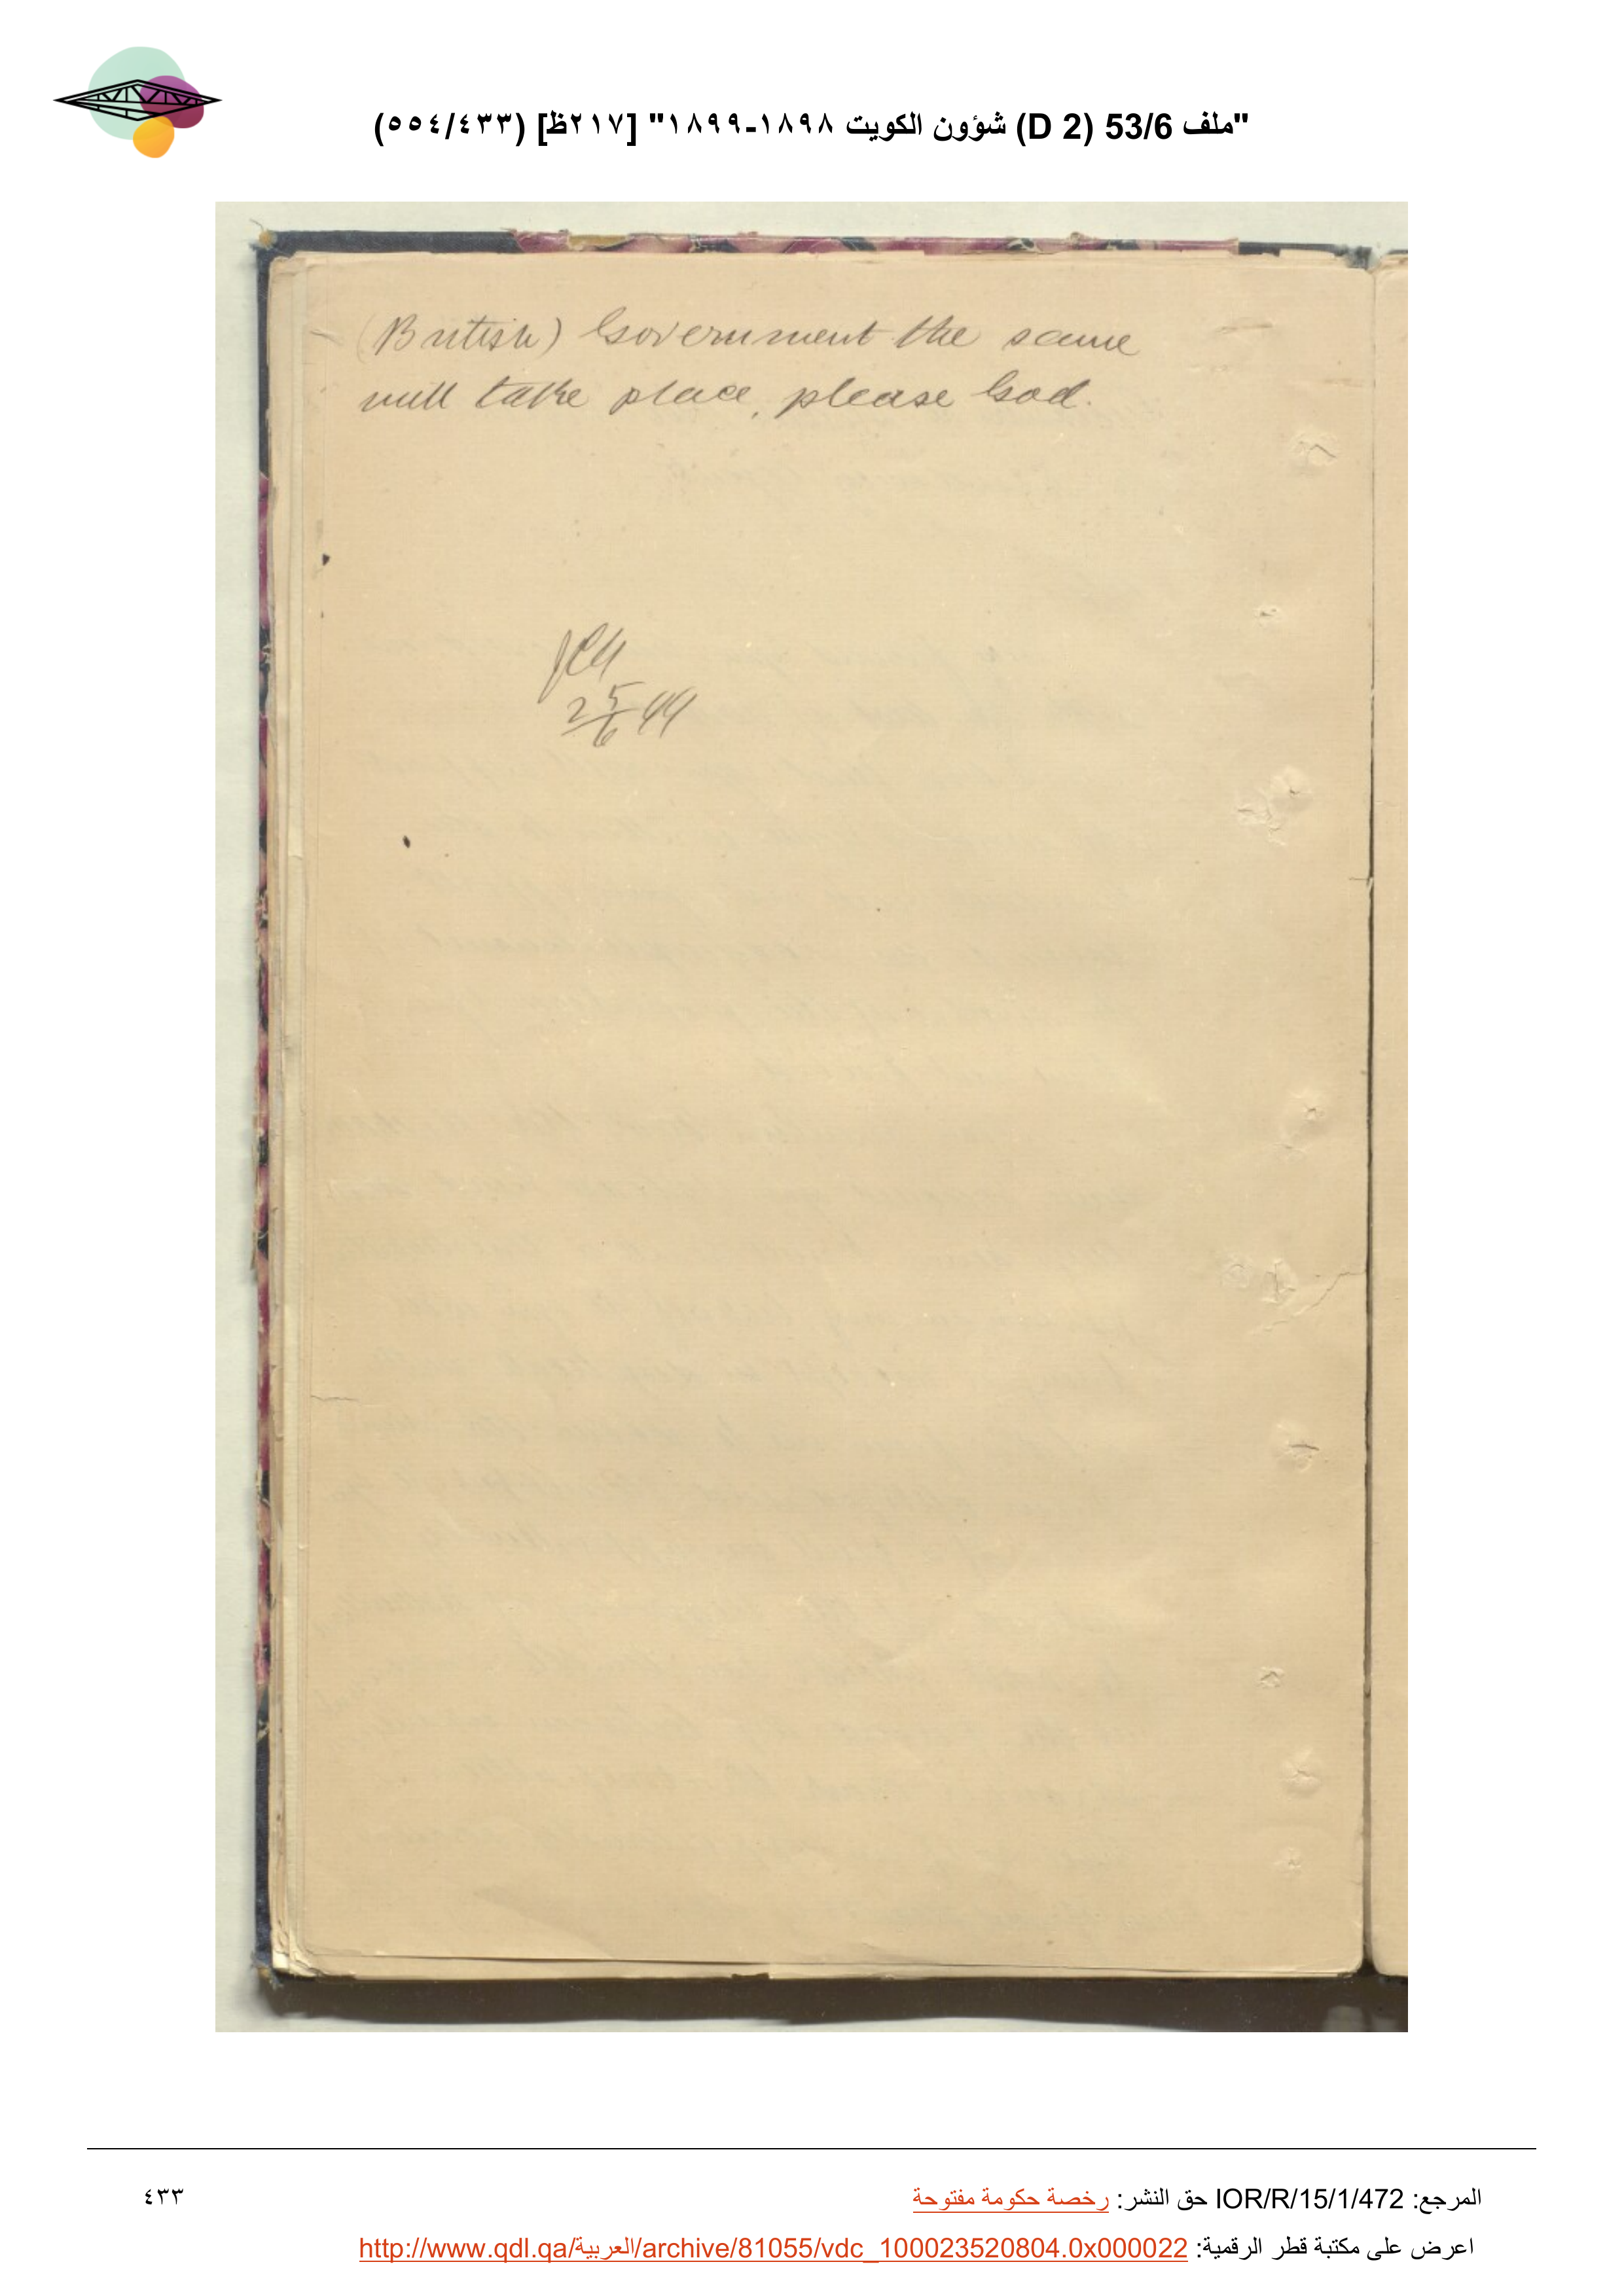 "ملف 53/6 (D 2) شؤون الكويت ١٨٩٨-١٨٩٩" [٢١٧ظ] (٥٥٤/٤٣٣)
(British) Government the same
will take place, please God.
المرجع: IOR/R/15/1/472 حق النشر: رخصة حكومة مفتوحة
٤٣٣
اعرض على مكتبة قطر الرقمية: http://www.qdl.qa/العربية/archive/81055/vdc_100023520804.0x000022